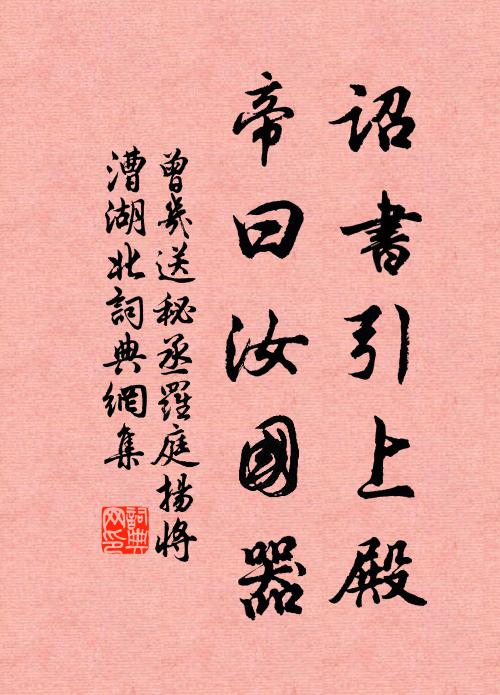 詔書引上殿
帝曰汝國器
曾幾送秘丞羅庭揚將
漕湖北詞典網集
詞典
网印